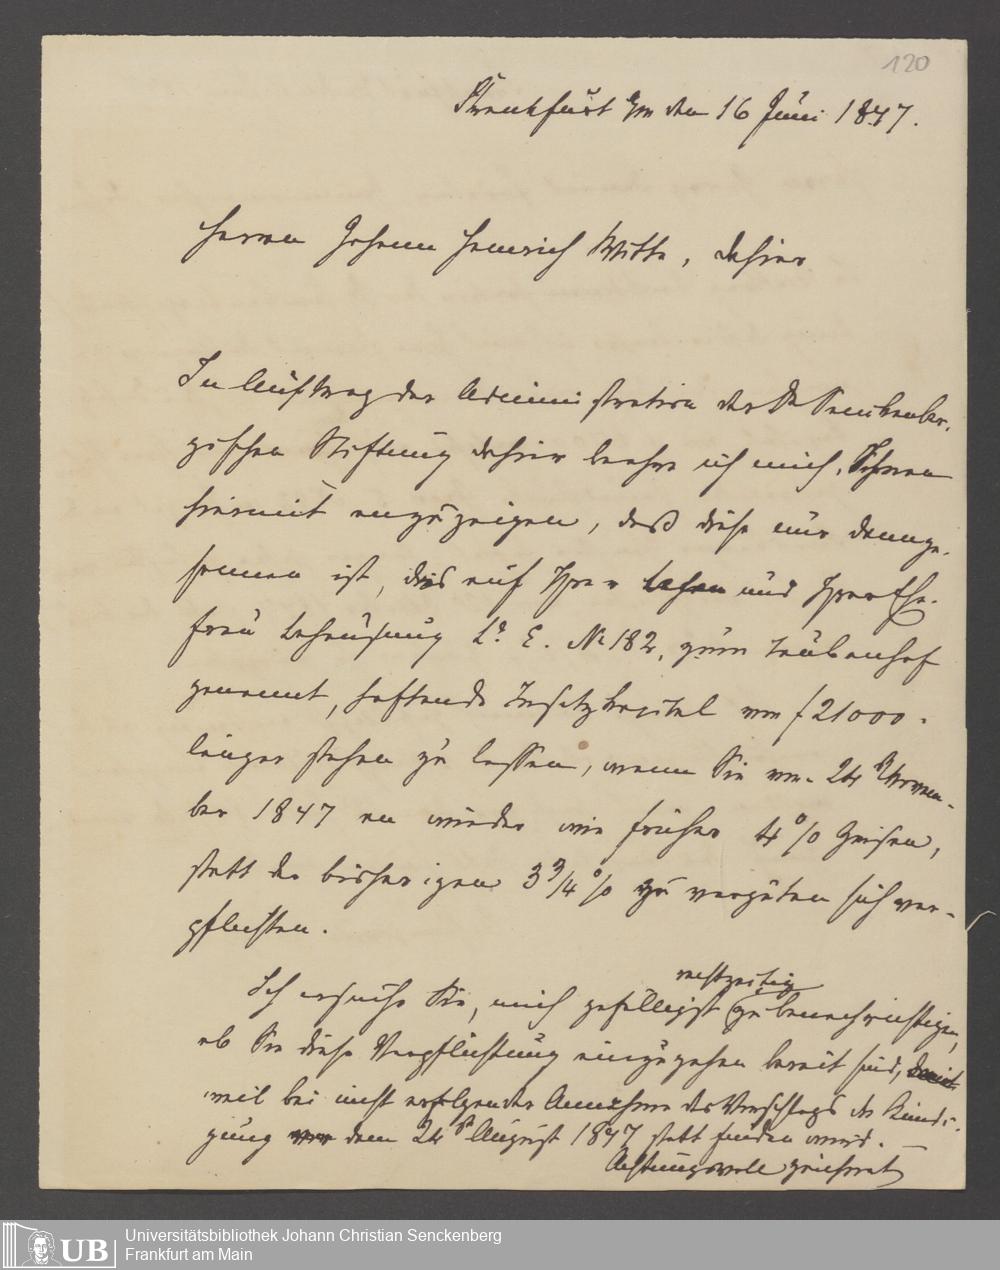 120
Frankfurt a/m den 16 Juni 1847.
Herrn Johann Heinrich Witte, dahier
Im Auftrag der Administration der Dr Senckenber-
gischen Stiftung dahier beehre ich mich, Ihnen
hiermit anzuzeigen, daß diese nur dann ge-
sonnen ist, das auf Ihrer und Ihrer Ehe-
frau Behausung Lr. E. No 182, zum Taubenhof
genannt, haftende Insatzkapital von f 21000.
länger stehen zu lassen, wenn Sie vom 24 Novem-
ber 1847 an wieder wie früher 4 % Zinsen,
statt der bisherigen 3 3/4 % zu vergüten sich ver-
pflichten.
Ich ersuche Sie, mich gefälligst rechtzeitig zu benachrichtigen,
ob Sie diese Verpflichtung einzugehen bereit sind,
weil bei nicht erfolgender Annahme des Vorschlags die Kündi-
gung vor dem 24 August 1847 statt finden wird. —
Achtungsvoll zeichnet
UB
Universitätsbibliothek Johann Christian Senckenberg
Frankfurt am Main